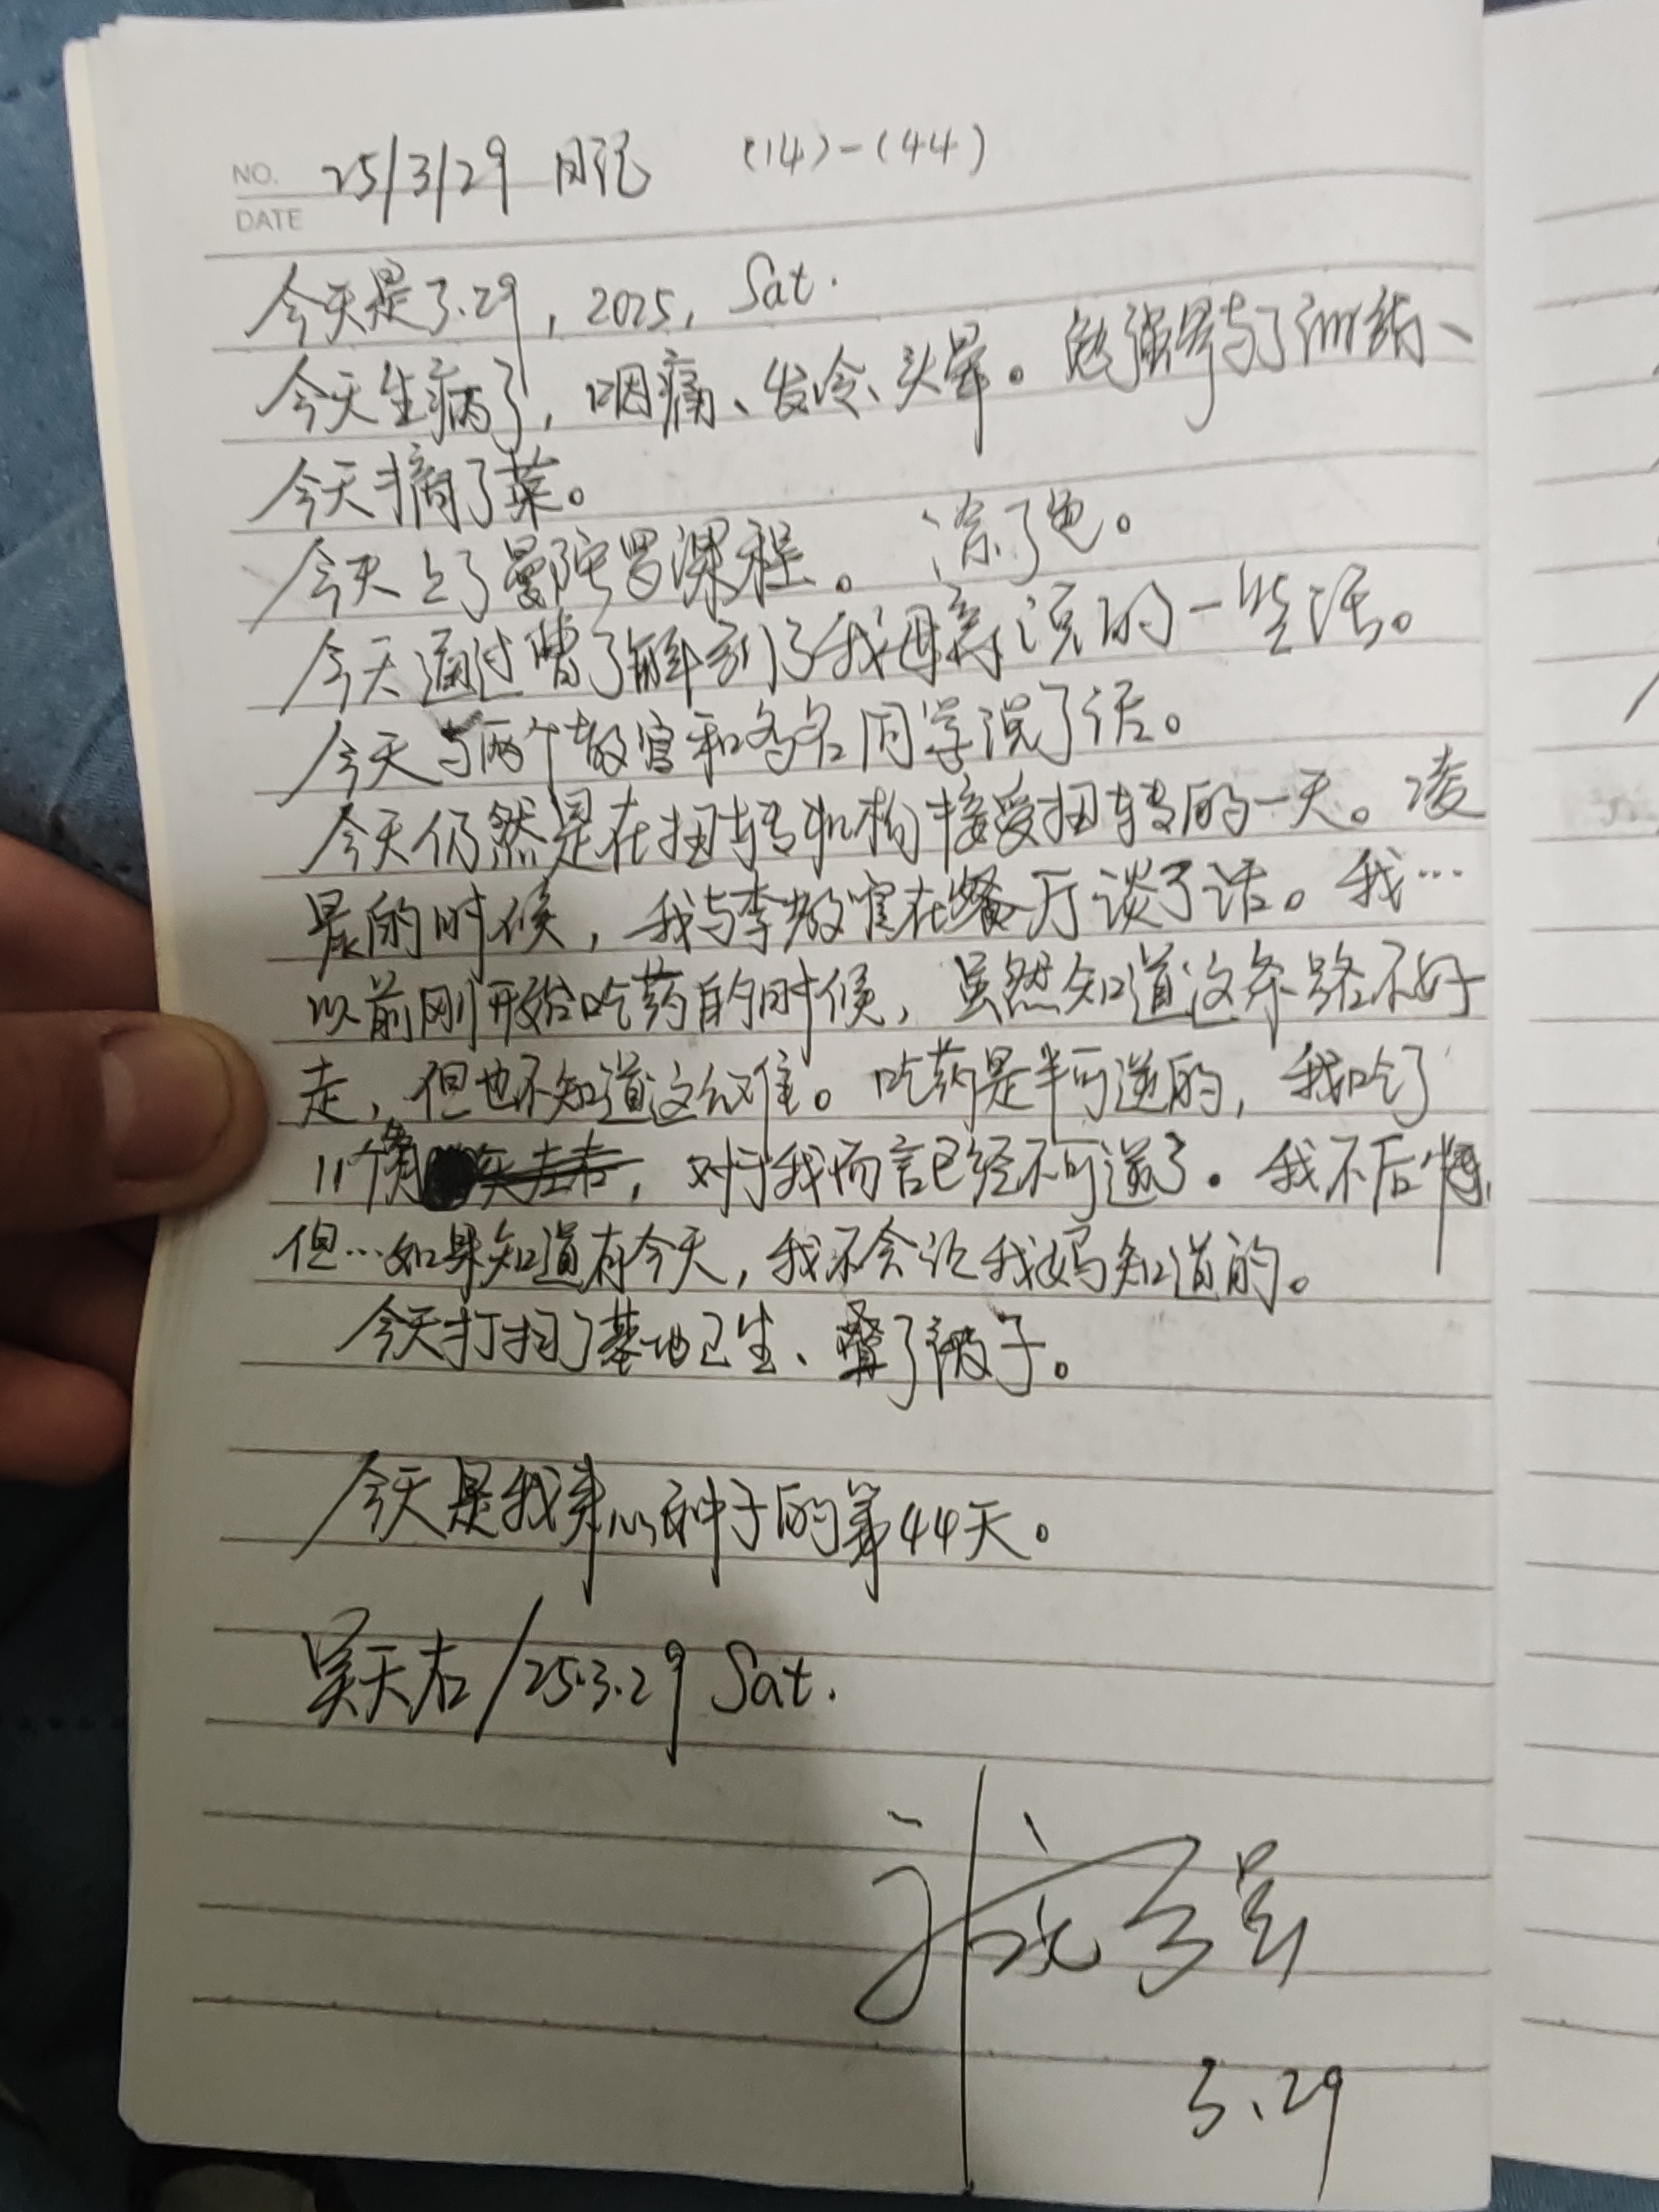 NO. 25/3/29 日记 (14)-(44)
DATE
今天是3.29, 2025, Sat.
今天生病了, 咽痛、发冷、头晕。勉强参与了训练、
今天摘了菜。
今天上了曼陀罗课程。 涂了色。
今天通过曹了解到了我母亲说的一些话。
今天与两个教官和多名同学说了话。
今天仍然是在扭转机构接受扭转的一天。凌
晨的时候, 我与李教官在餐厅谈了话。我…
以前刚开始吃药的时候, 虽然知道这条路不好
走, 但也不知道这么难。吃药是半可逆的, 我吃了
11个月, 对于我而言已经不可逆了. 我不后悔,
但…如果知道有今天, 我不会让我妈知道的。
今天打扫了基地卫生、叠了被子。
今天是我来心种子的第44天。
吴天右/25.3.29 Sat.
3.29